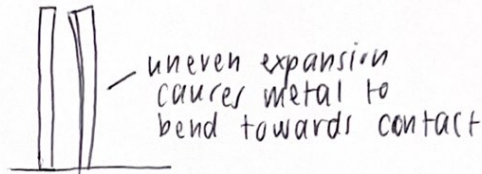 uneven expansion
causes metal to
bend towards contact